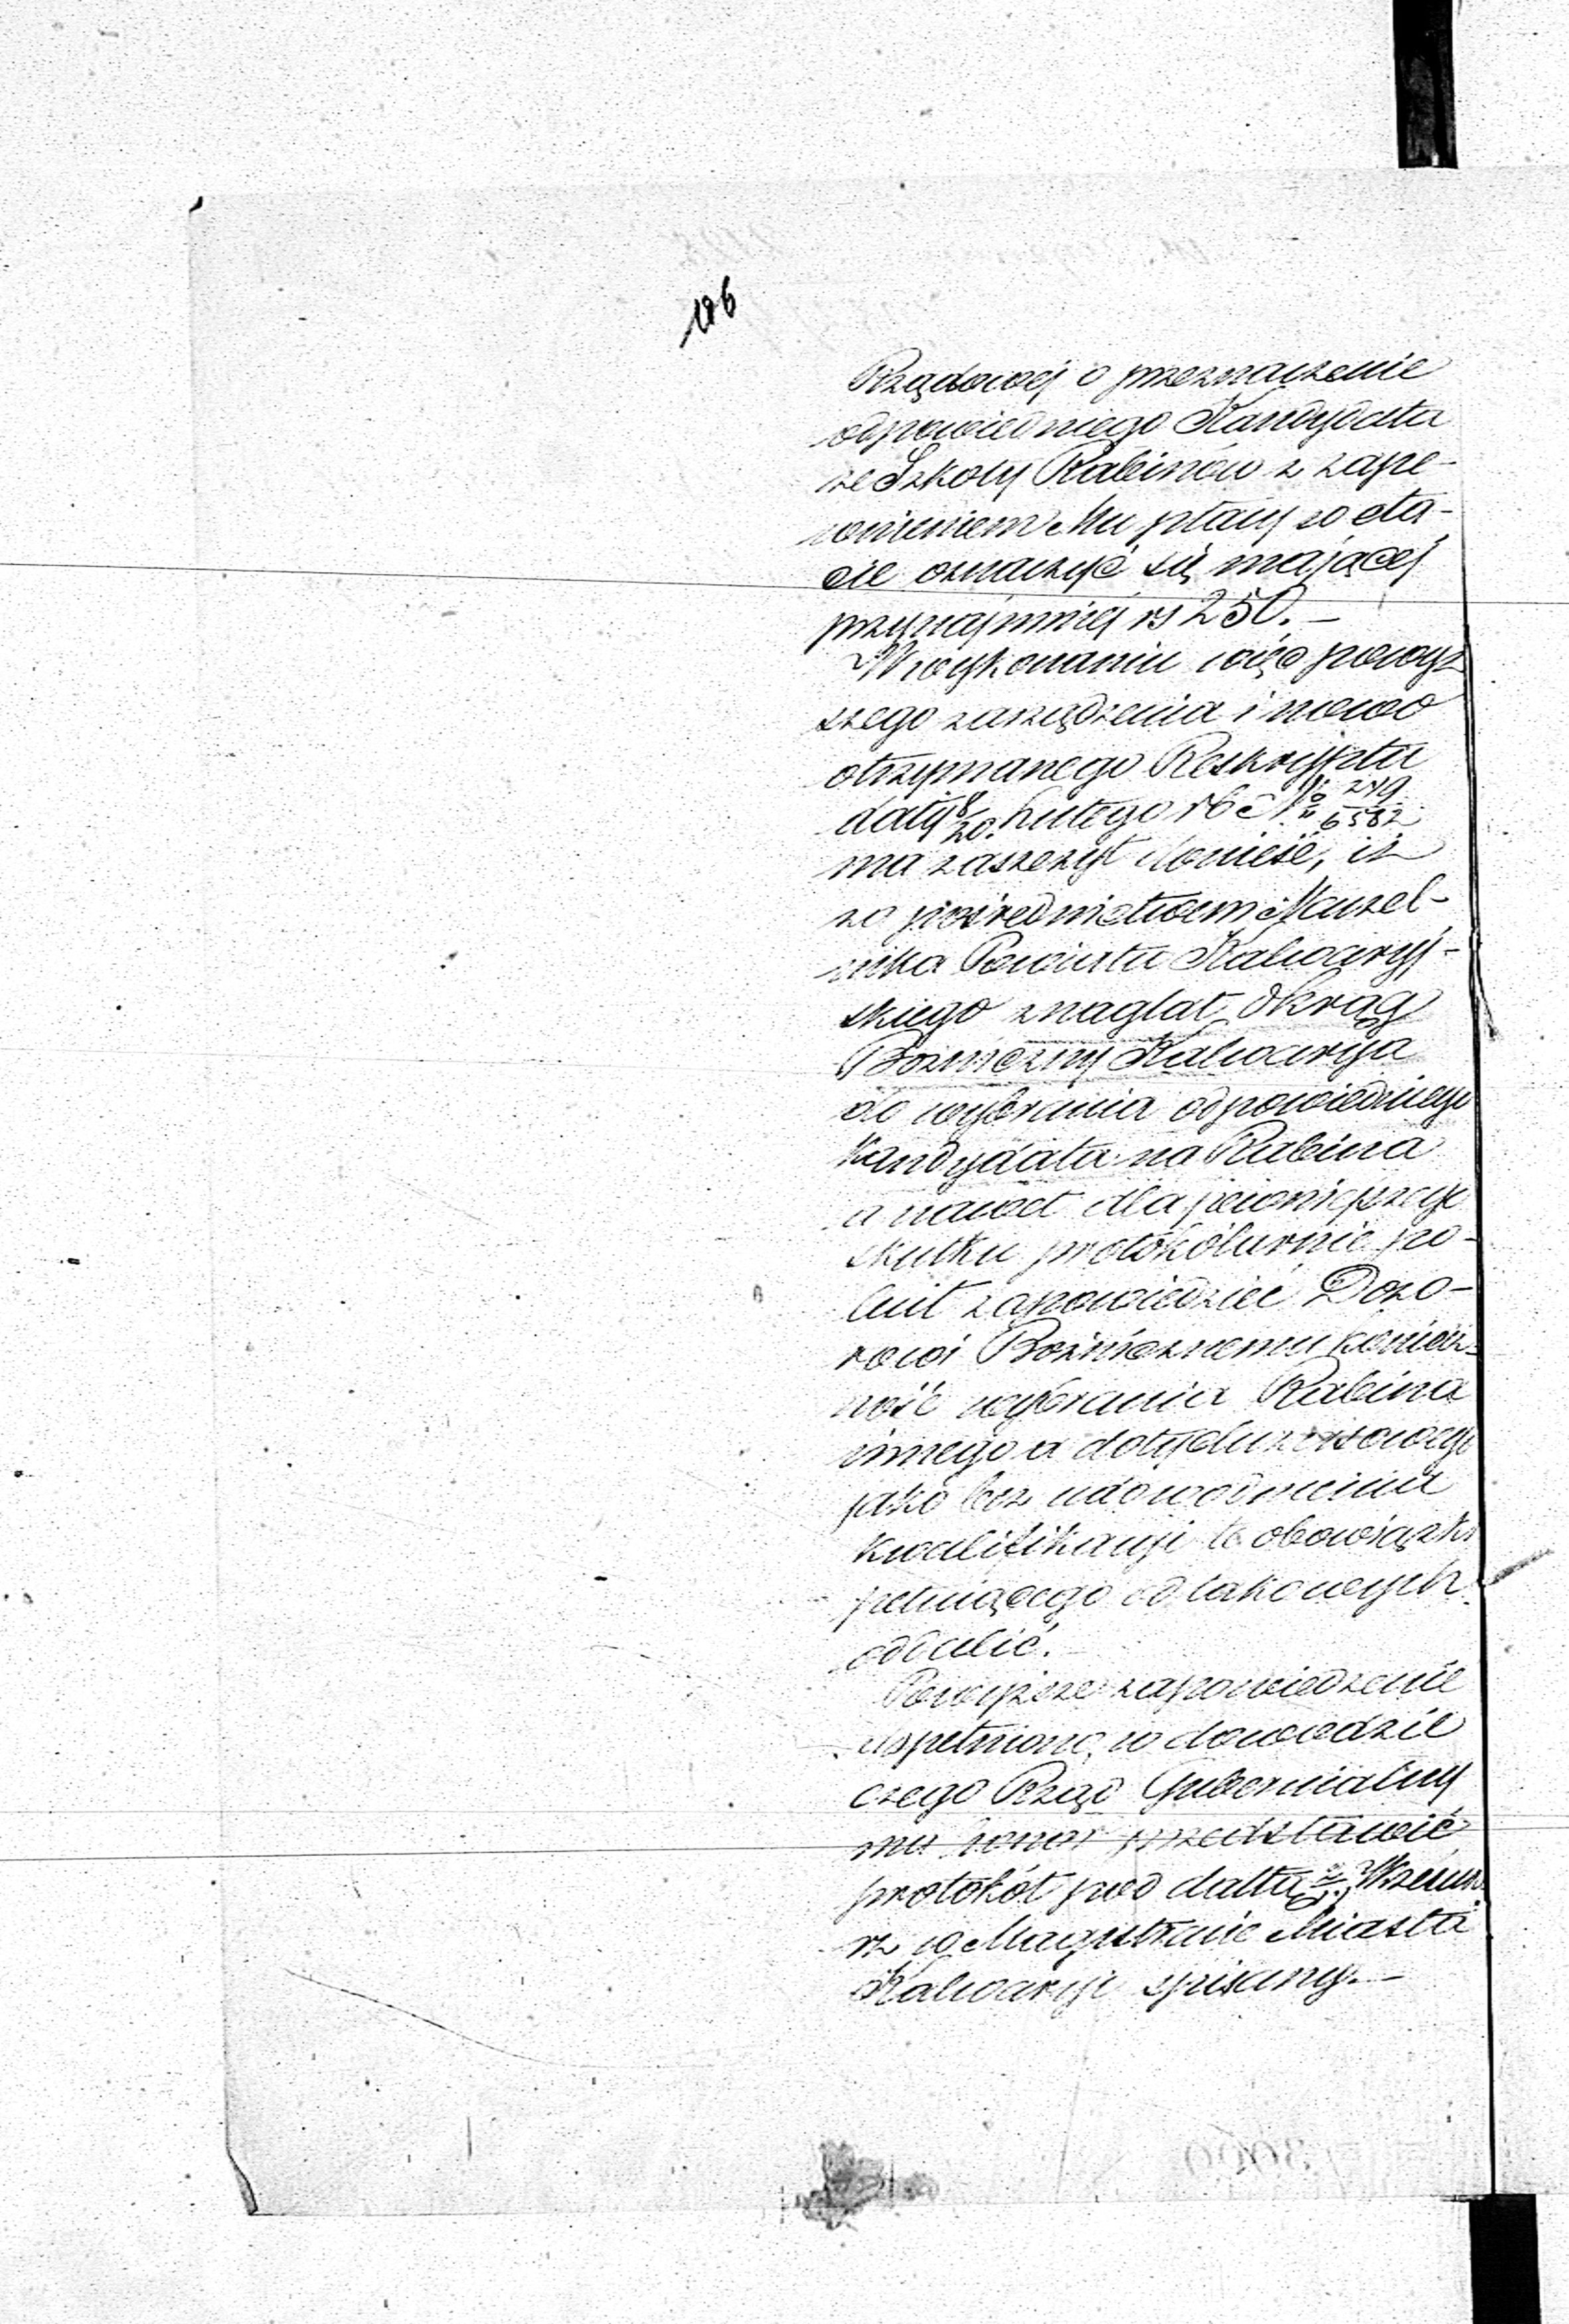 186
Rządowej o przeznaczenie
odpowiedniego Kandydata
ze Szkoły Rabinów z zape-
wnieniem Mu płacy w eta-
cie oznaczyć się mającej
przynajmniej rs 250. –
W wykonaniu więc powyż
szego zarządzenia i nowo
otrzymanego Reskryptu
daty 8/20. Lutego rb č № 219/6582
ma zaszczyt donieść, iż
za pośrednictwem Naczel-
nika Powiatu Kalwaryj-
skiego znaglał Okrąg
Bożniczny Kalwaryja
do wybrania odpowiedniego
Kandydata na Rabina
a nawet dla pewniejszego
skutku protokólarnie po-
lecił zapowiedzieć Dozo-
rowi Bożnicznemu koniecz-
ność wybrania Rabina
innego a dotychczasowego
jako bez udowodnienia
kwalifikacyi te obowiązki
pełniącego od takowych
oddalić. –
Powyższe zapowiedzenie
uspełniono, w dowodzie
czego Rząd Gubernialny
ma honor przedstawić
protokół pod dattą
rz w Magistracie Miasta
Kalwaryi spisany. –